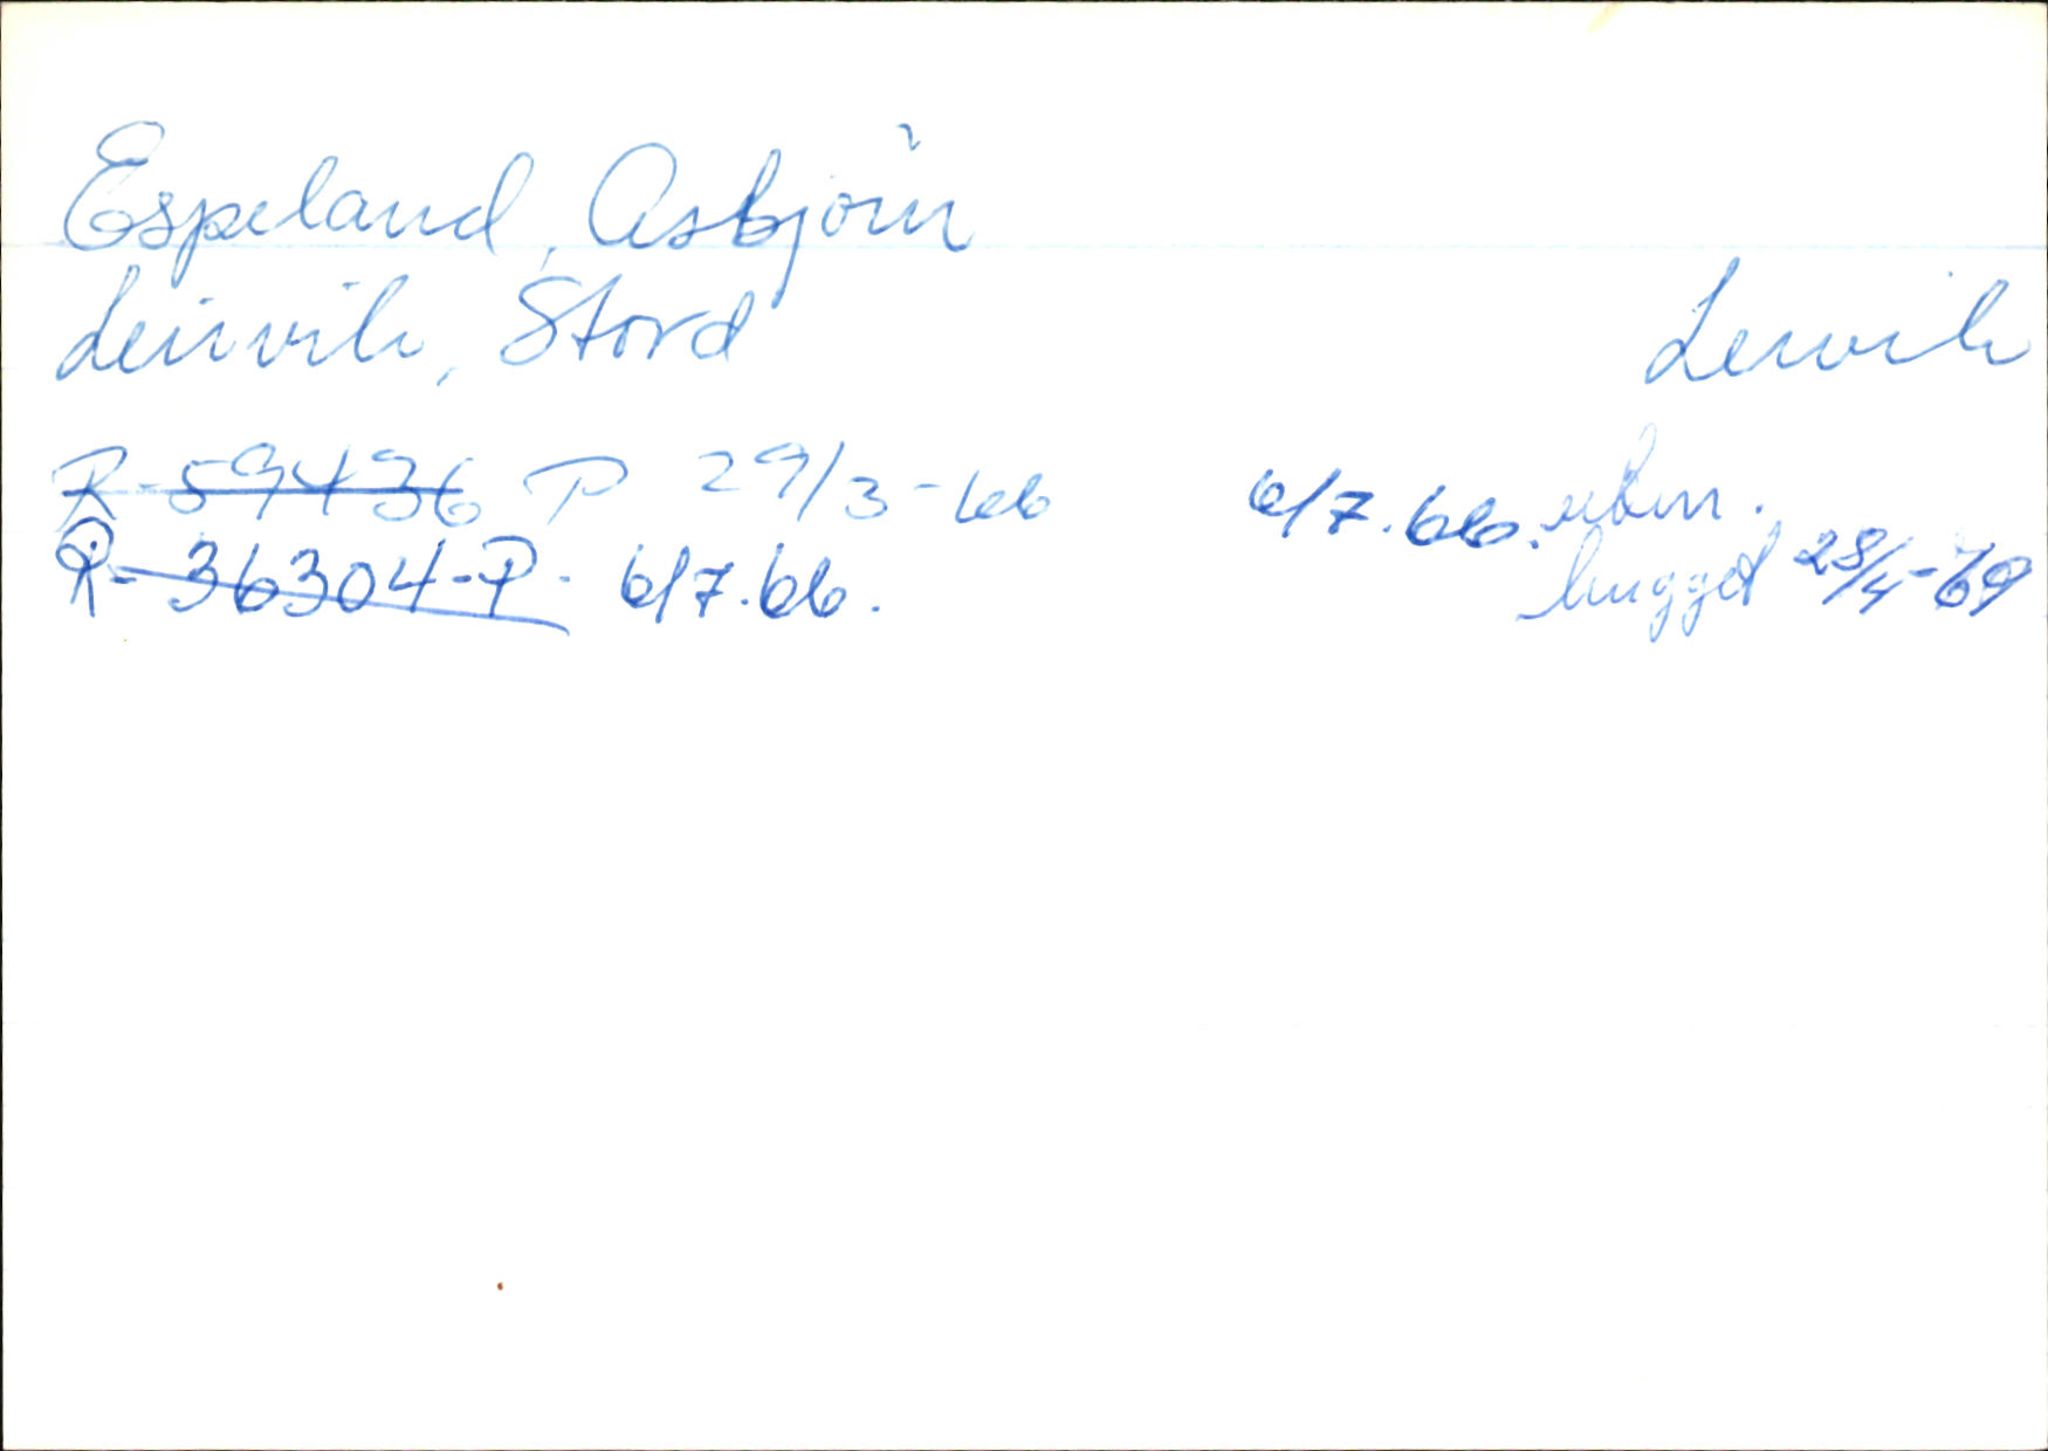 Espeland, Asbjörn
Leirvik, Stord Lervik
R-59436 P 29/3-66 6/7.66. ubm.
R-36304-P. 6/7.66. hugget 28/4-69